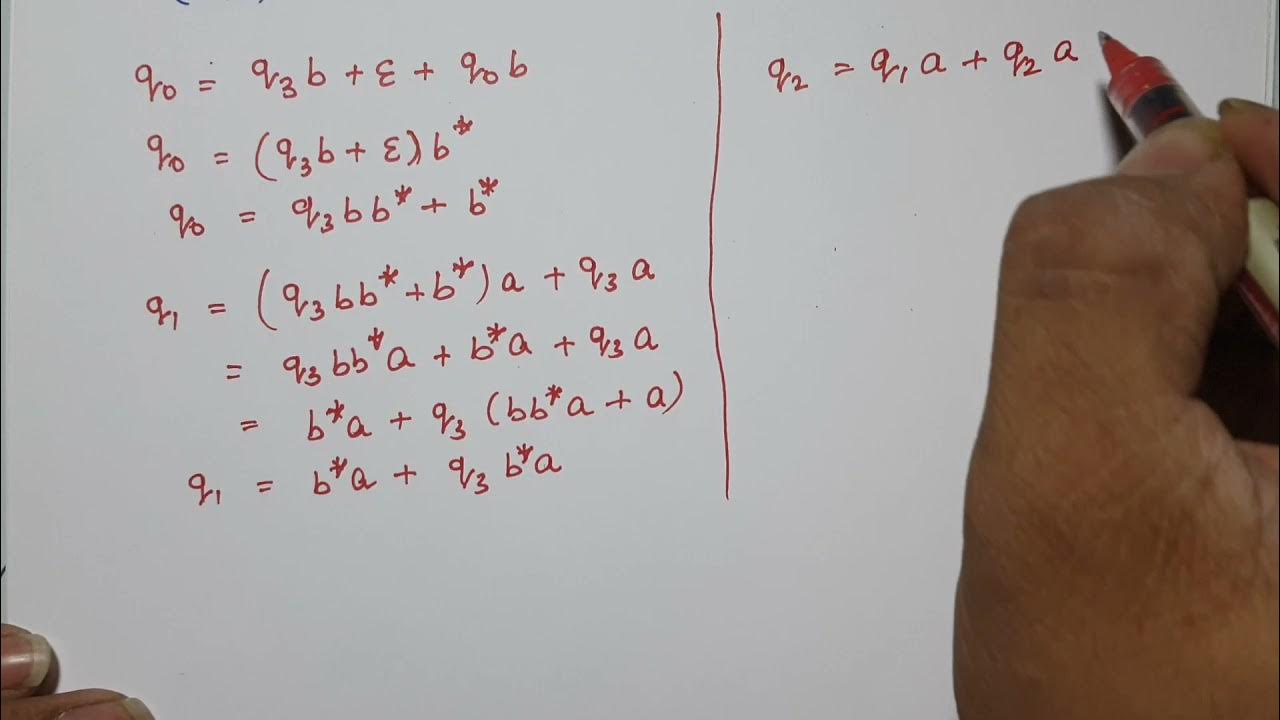 q₀ = q₃b + ε + q₀b
q₀ = (q₃b + ε)b*
q₀ = q₃bb* + b*
q₁ = (q₃bb* + b*)a + q₃a
= q₃bb*a + b*a + q₃a
= b*a + q₃(bb*a + a)
q₁ = b*a + q₃b*a
q₂ = q₁a + q₂a